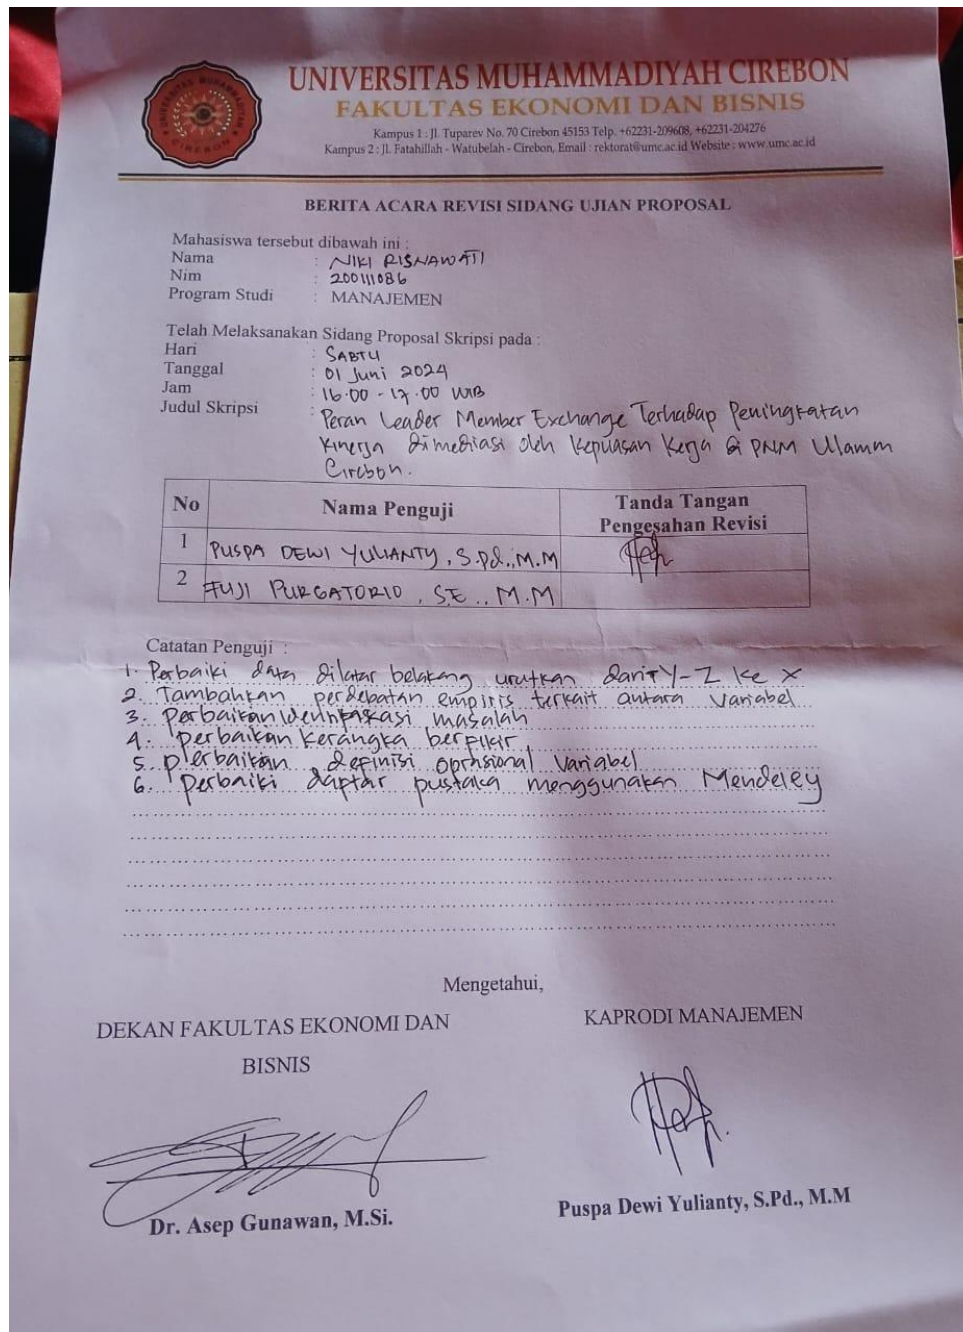 UNIVERSITAS MUHAMMADIYAH CIREBON
FAKULTAS EKONOMI DAN BISNIS
Kampus 1 : Jl. Tuparev No. 70 Cirebon 45153 Telp. +62231-209608, +62231-204276
Kampus 2 : Jl. Fatahillah - Watubelah - Cirebon, Email : rektorat@umc.ac.id Website : www.umc.ac.id
BERITA ACARA REVISI SIDANG UJIAN PROPOSAL
Mahasiswa tersebut dibawah ini :
Nama : NIKI RISNAWATI
Nim : 200111086
Program Studi : MANAJEMEN
Telah Melaksanakan Sidang Proposal Skripsi pada :
Hari : SABTU
Tanggal : 01 Juni 2024
Jam : 16.00 - 17.00 WIB
Judul Skripsi : Peran Leader Member Exchange Terhadap Peningkatan
Kinerja dimediasi oleh Kepuasan Kerja di PNM Ulamm
Cirebon.
No Nama Penguji Tanda Tangan
Pengesahan Revisi
1 PUSPA DEWI YULIANTY, S.Pd., M.M
2 FUJI PURGATORIO, SE., M.M
Catatan Penguji :
1. Perbaiki data dilatar belakang urutkan dari Y-Z ke X
2. Tambahkan perdebatan empiris terkait antara variabel
3. perbaikan identifikasi masalah
4. perbaikan kerangka berfikir
5. perbaikan definisi oprasional variabel
6. perbaiki daftar pustaka menggunakan Mendeley
Mengetahui,
DEKAN FAKULTAS EKONOMI DAN
BISNIS
KAPRODI MANAJEMEN
Dr. Asep Gunawan, M.Si.
Puspa Dewi Yulianty, S.Pd., M.M